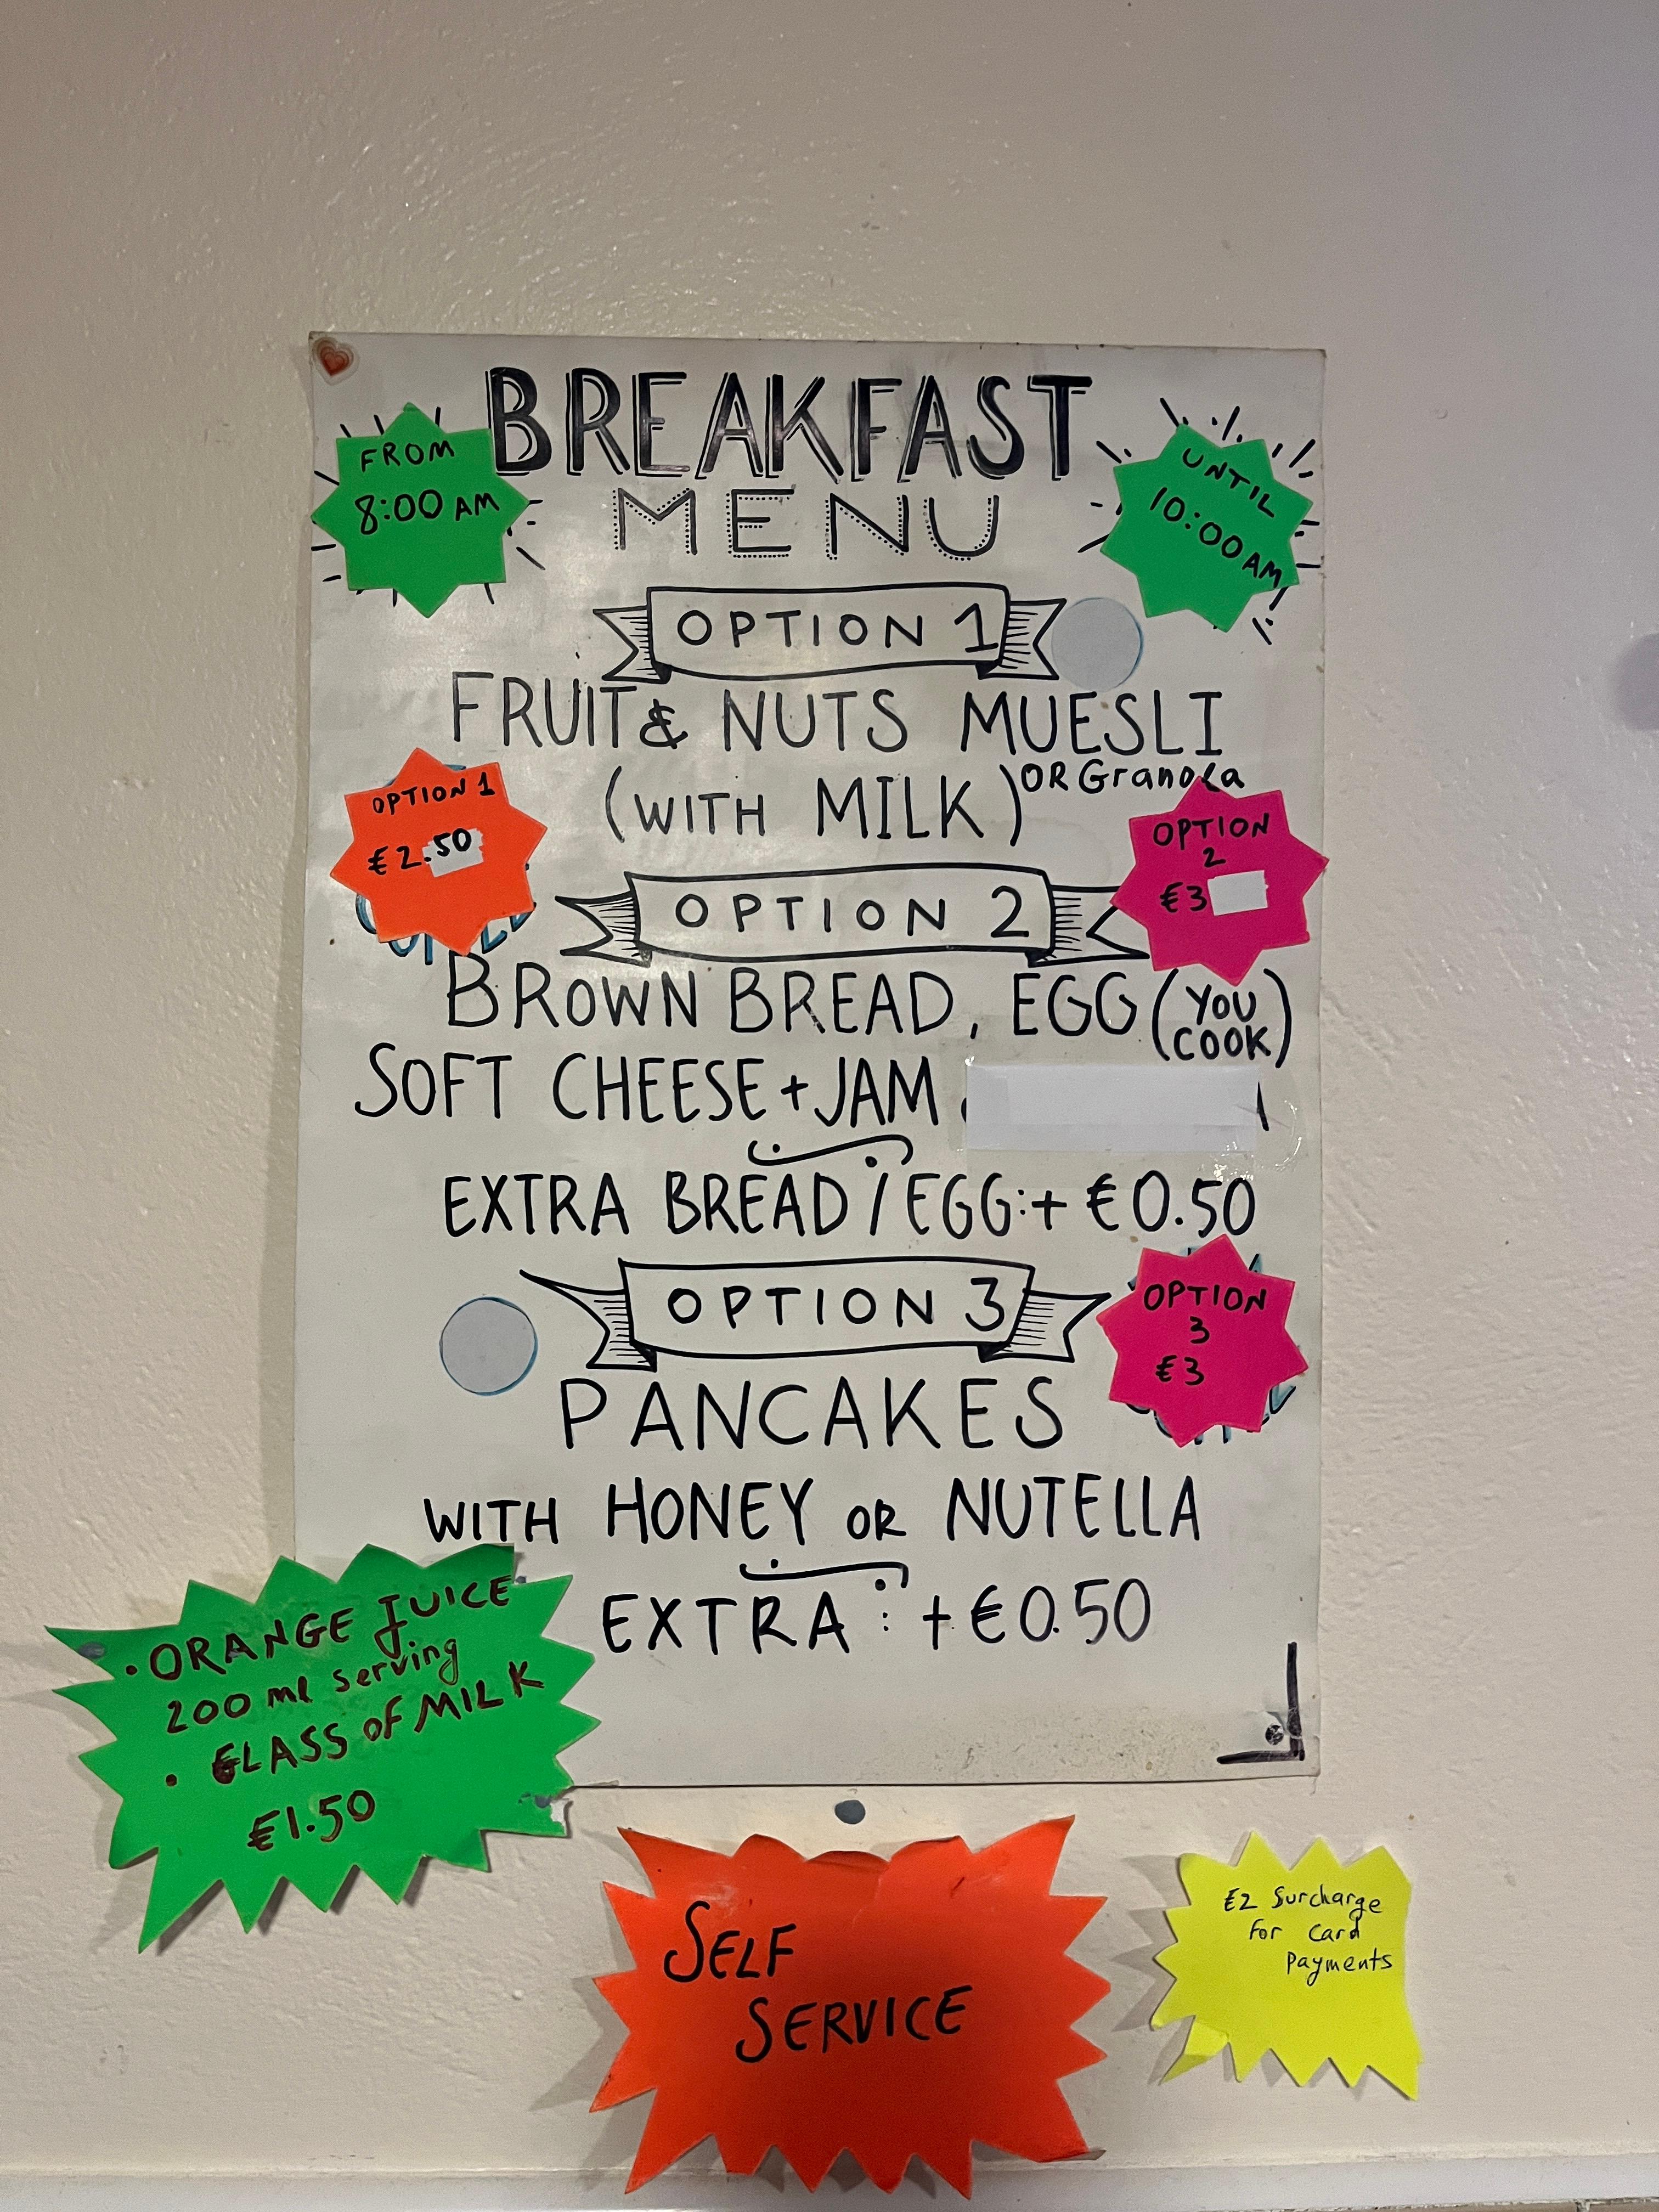 BREAKFAST
MENU
FROM
8:00 AM
UNTIL
10:00 AM
OPTION 1
FRUIT & NUTS MUESLI
(WITH MILK) OR Granola
OPTION 1
€2.50
OPTION
2
€3
OPTION 2
BROWN BREAD, EGG (YOU
COOK)
SOFT CHEESE + JAM
EXTRA BREAD / EGG: + €0.50
OPTION 3
OPTION
3
€3
PANCAKES
WITH HONEY OR NUTELLA
EXTRA: + €0.50
• ORANGE JUICE
200 ml serving
• GLASS OF MILK
€1.50
SELF
SERVICE
€2 Surcharge
For Card
Payments